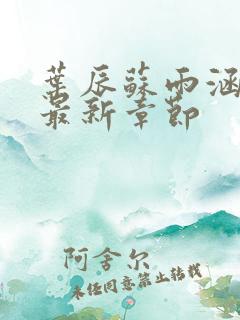 葉辰蘇雨涵
最新章節
阿舍尔
未经同意禁止转载